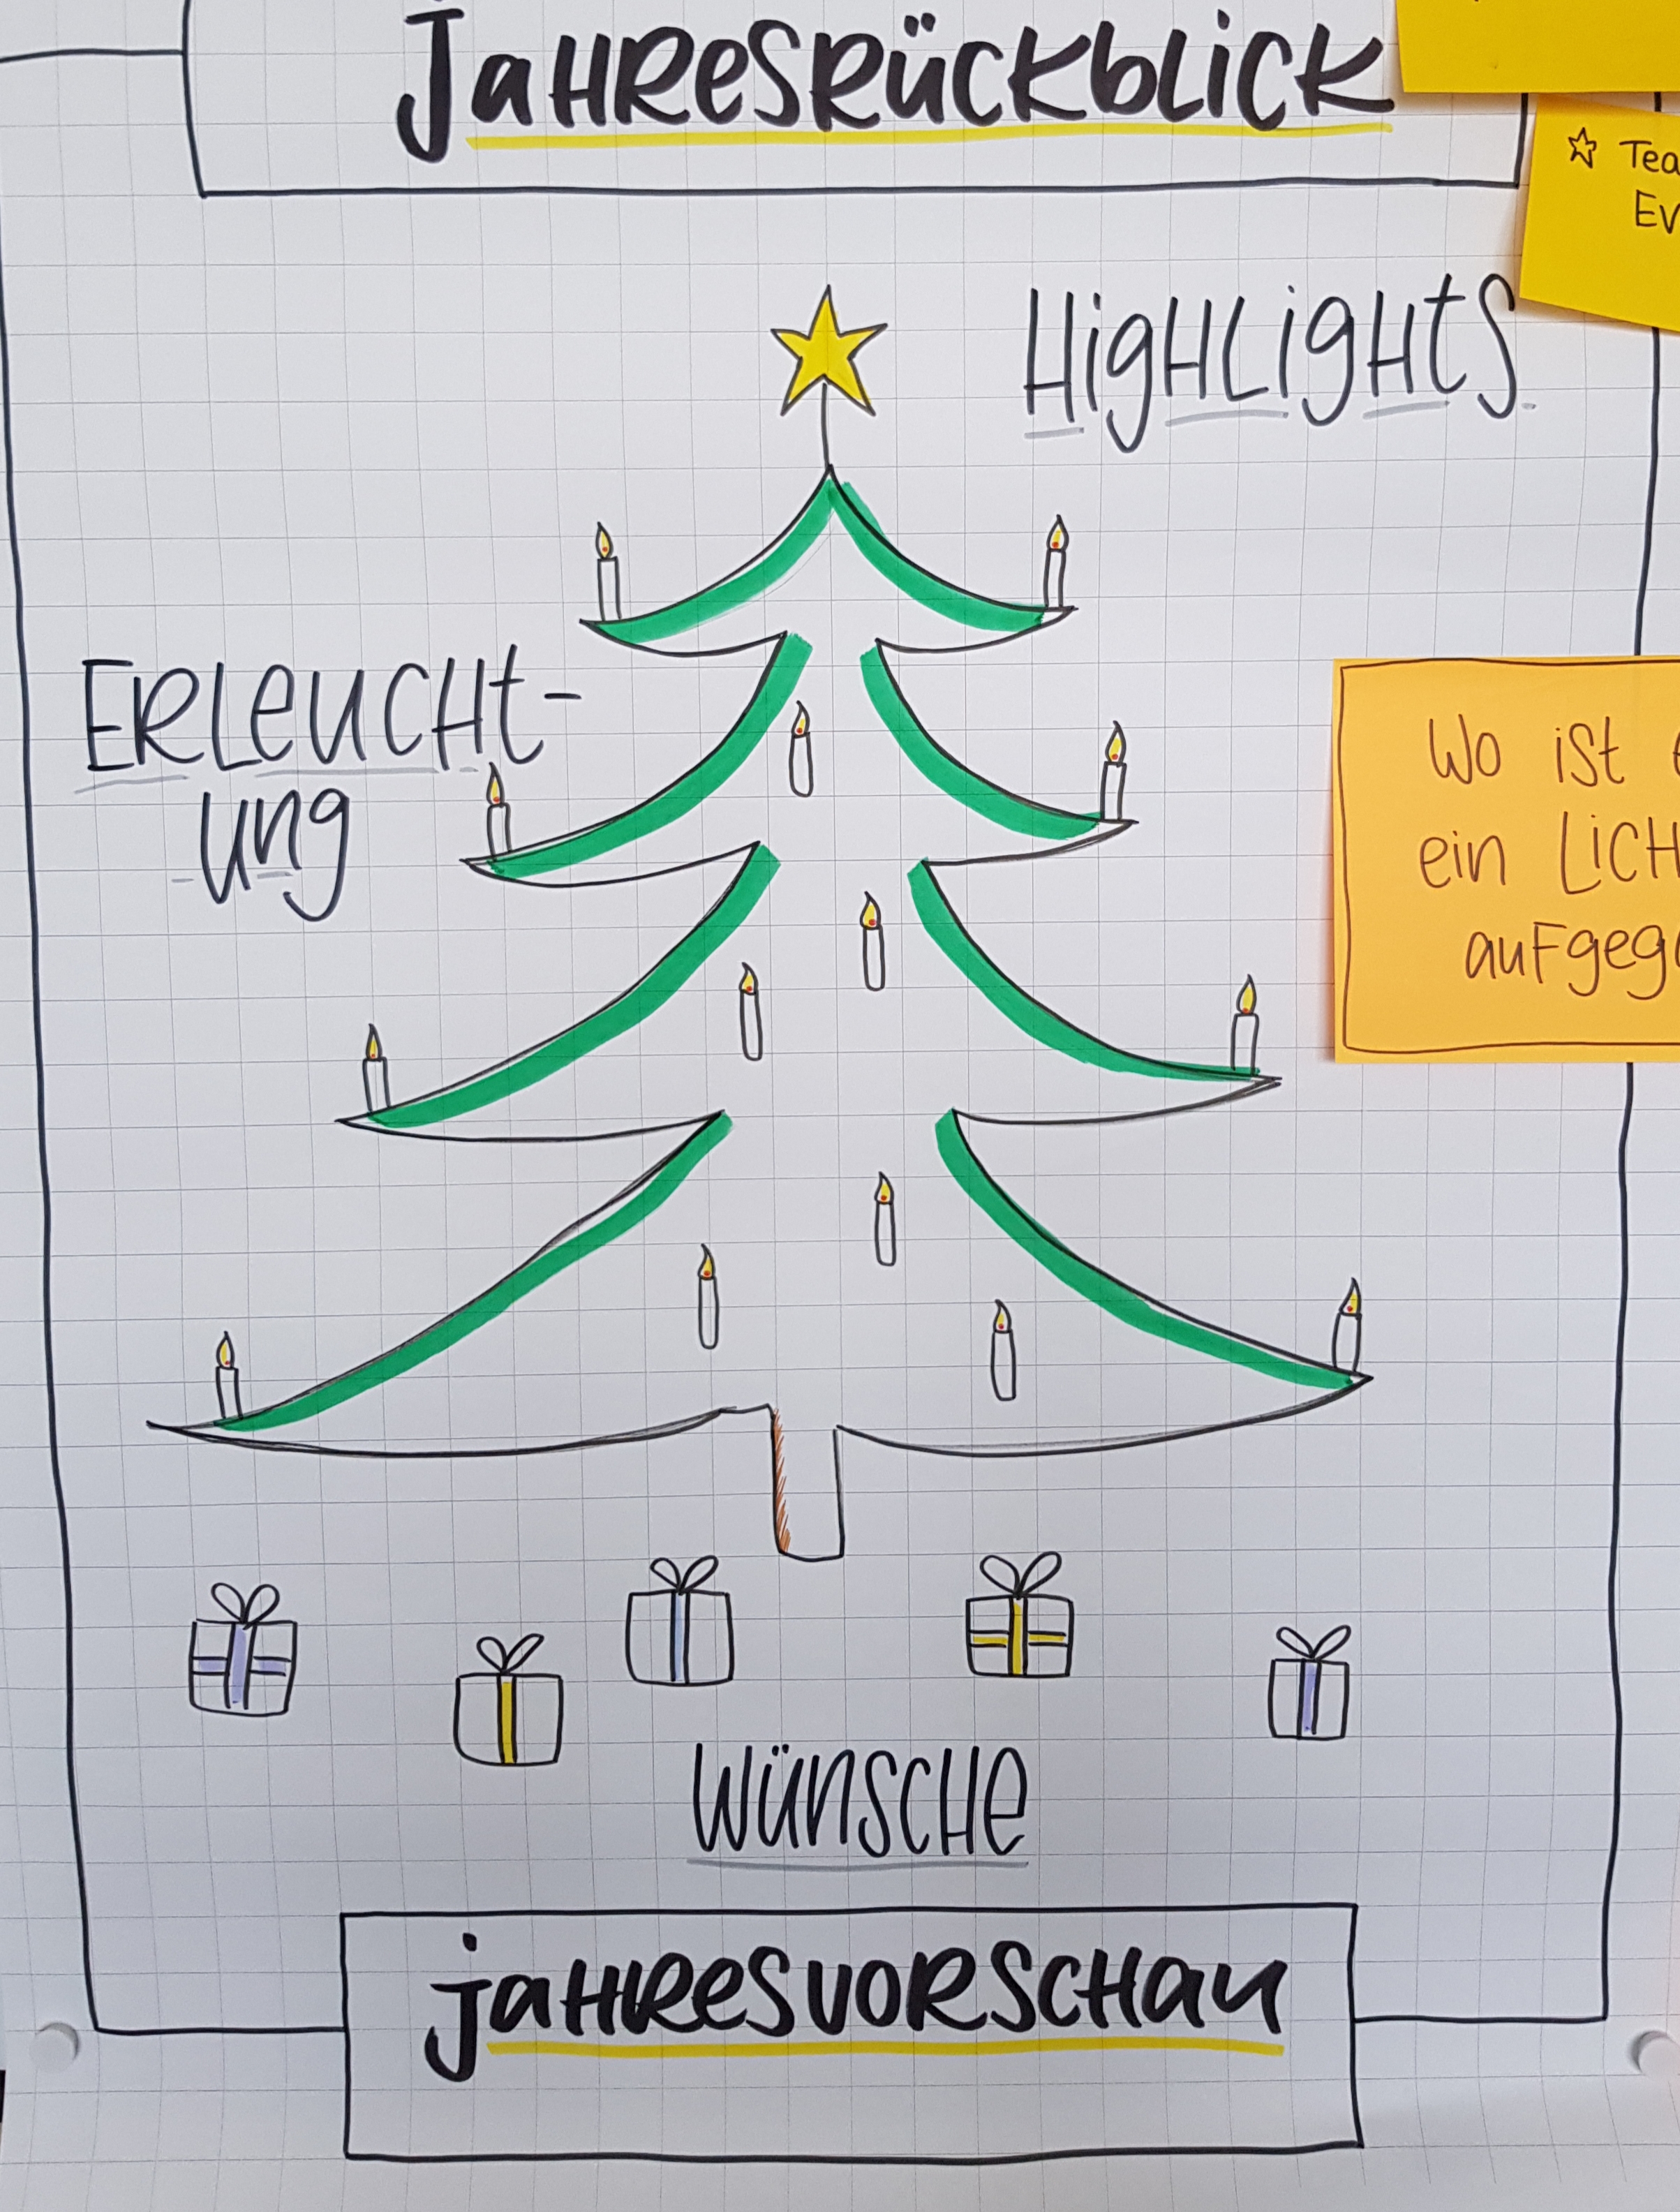 Jahresrückblick
☆ Tea
Ev
Highlights
Erleucht-
ung
Wo ist
ein Lich
aufgeg
Wünsche
Jahresvorschau